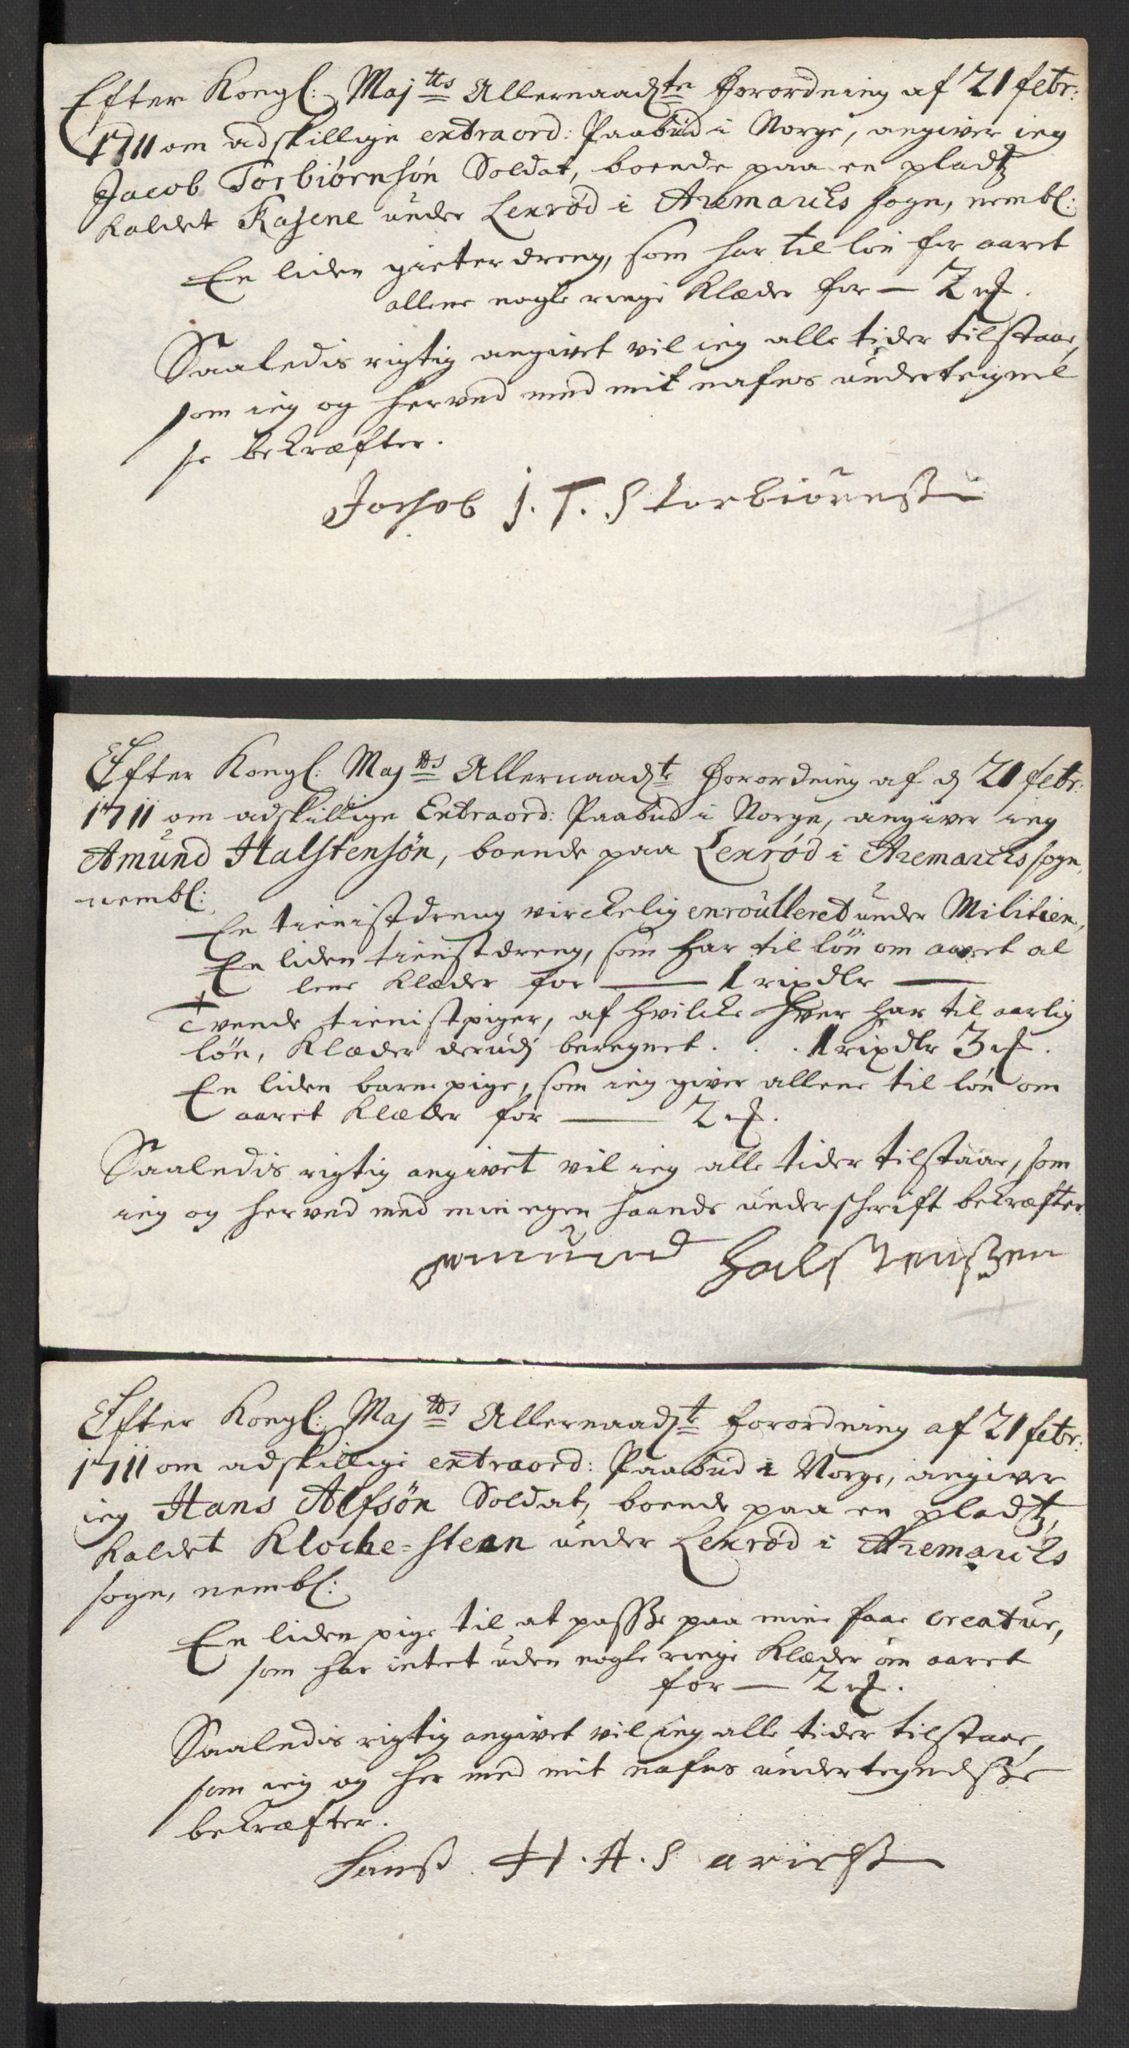 Efter Kongl: Majtts Allernaadste Forordning af 21 febr:
1711 om adskillige extraord: Paabud i Norge, angiver ieg
Jacob Torbiørnsøn Soldat, boende paa en pladtz
kaldet Kasene under Lexrød i Aremarchs sogn, nembl:
En liden gieterdreng, som har til løn for aaret
allene nogle ringe Klæder for — 2
Saaledis rigtig angivet vil ieg alle tider tilstaae,
som ieg og herved med mit nafns underteignel
se bekræfter.
Jachob J. T. S torbiørnsß
Efter Kongl: Majtts Allernaadste Forordning af d 21 febr:
1711 om adskillige Extraord: Paabud i Norge, angiver ieg
Amund Halstensøn, boende paa Lexrød i Aremarchs sogn,
nembl:
En tienistdreng virckelig enroulleret under Militien,
En liden tienistdreng, som har til løn om aaret al
lene Klæder for — 1 rixdlr —
Tvende tienistpiger, af hvilcke hver har til aarlig
løn, Klæder derudj beregnet . . . 1 rixdlr 3
En liden barnepige, som ieg giver allene til løn om
aaret Klæder for — 2
Saaledis rigtig angivet vil ieg alle tider tilstaae, som
ieg og herved med min egen haands underschrift bekræfter.
Amund Halstenßen
Efter Kongl: Majtts Allernaadste Forordning af 21 febr:
1711 om adskillige extraord: Paabud i Norge, angiver
ieg Hans Alfsøn Soldat, boende paa en pladtz,
kaldet Klocke-steen under Lexrød i Aremarchs
sogn, nembl:
En liden pige til at passe paa mine faae Creatur,
som har intet uden nogle ringe Klæder om aaret
for — 2
Saaledis rigtig angivet vil ieg alle tider tilstaae,
som ieg og her med mit nafns undertegnelsße
bekræfter.
Hanß H. A. S